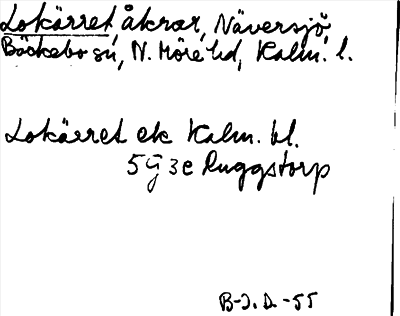 Lokärret åkrar, Näversjö,
Bäckebo sn, N. Möre hd, Kalm. l.
Lokärret ek Kalm. bl.
5G 3e Ruggstorp
B-J. D. -55